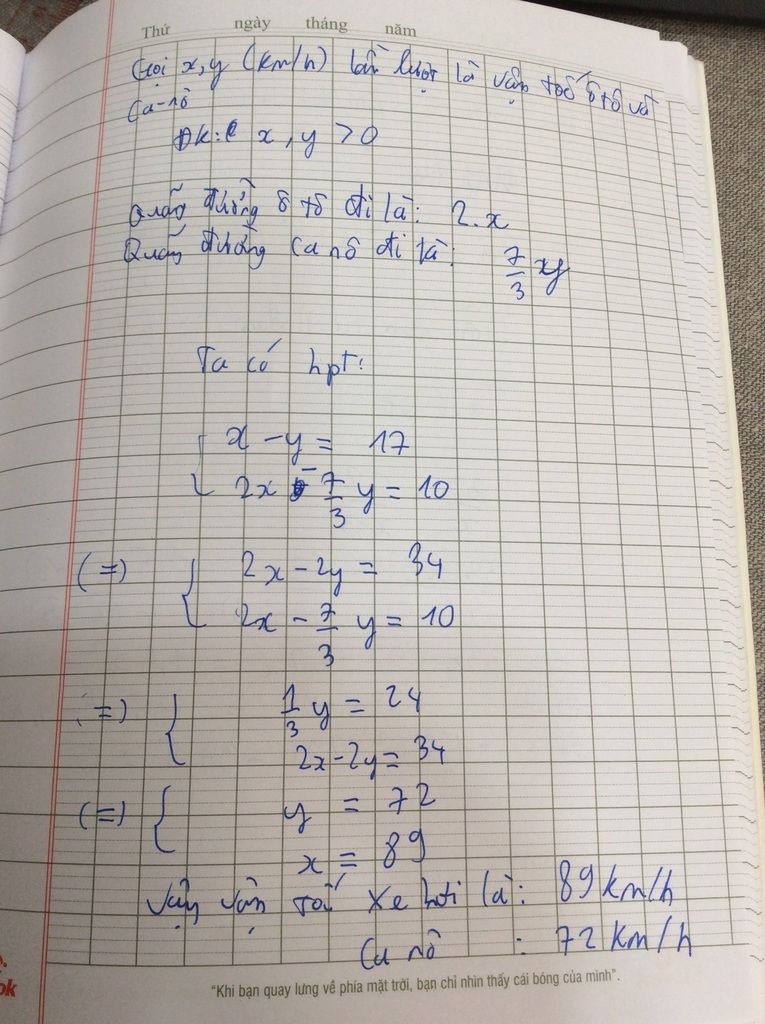 Thứ ngày tháng năm
Gọi x, y (km/h) lần lượt là vận tốc ô tô và
Ca-nô
ĐK: x, y > 0
Quãng đường ô tô đi là: 2.x
Quãng đường ca nô đi là: 7/3 y
Ta có hpt:
{ x - y = 17
2x - 7/3 y = 10
(=) { 2x - 2y = 34
2x - 7/3 y = 10
(=) { 1/3 y = 24
2x - 2y = 34
(=) { y = 72
x = 89
Vậy vận tốc xe hơi là: 89 km/h
Ca nô : 72 km/h
"Khi bạn quay lưng về phía mặt trời, bạn chỉ nhìn thấy cái bóng của mình".
ok